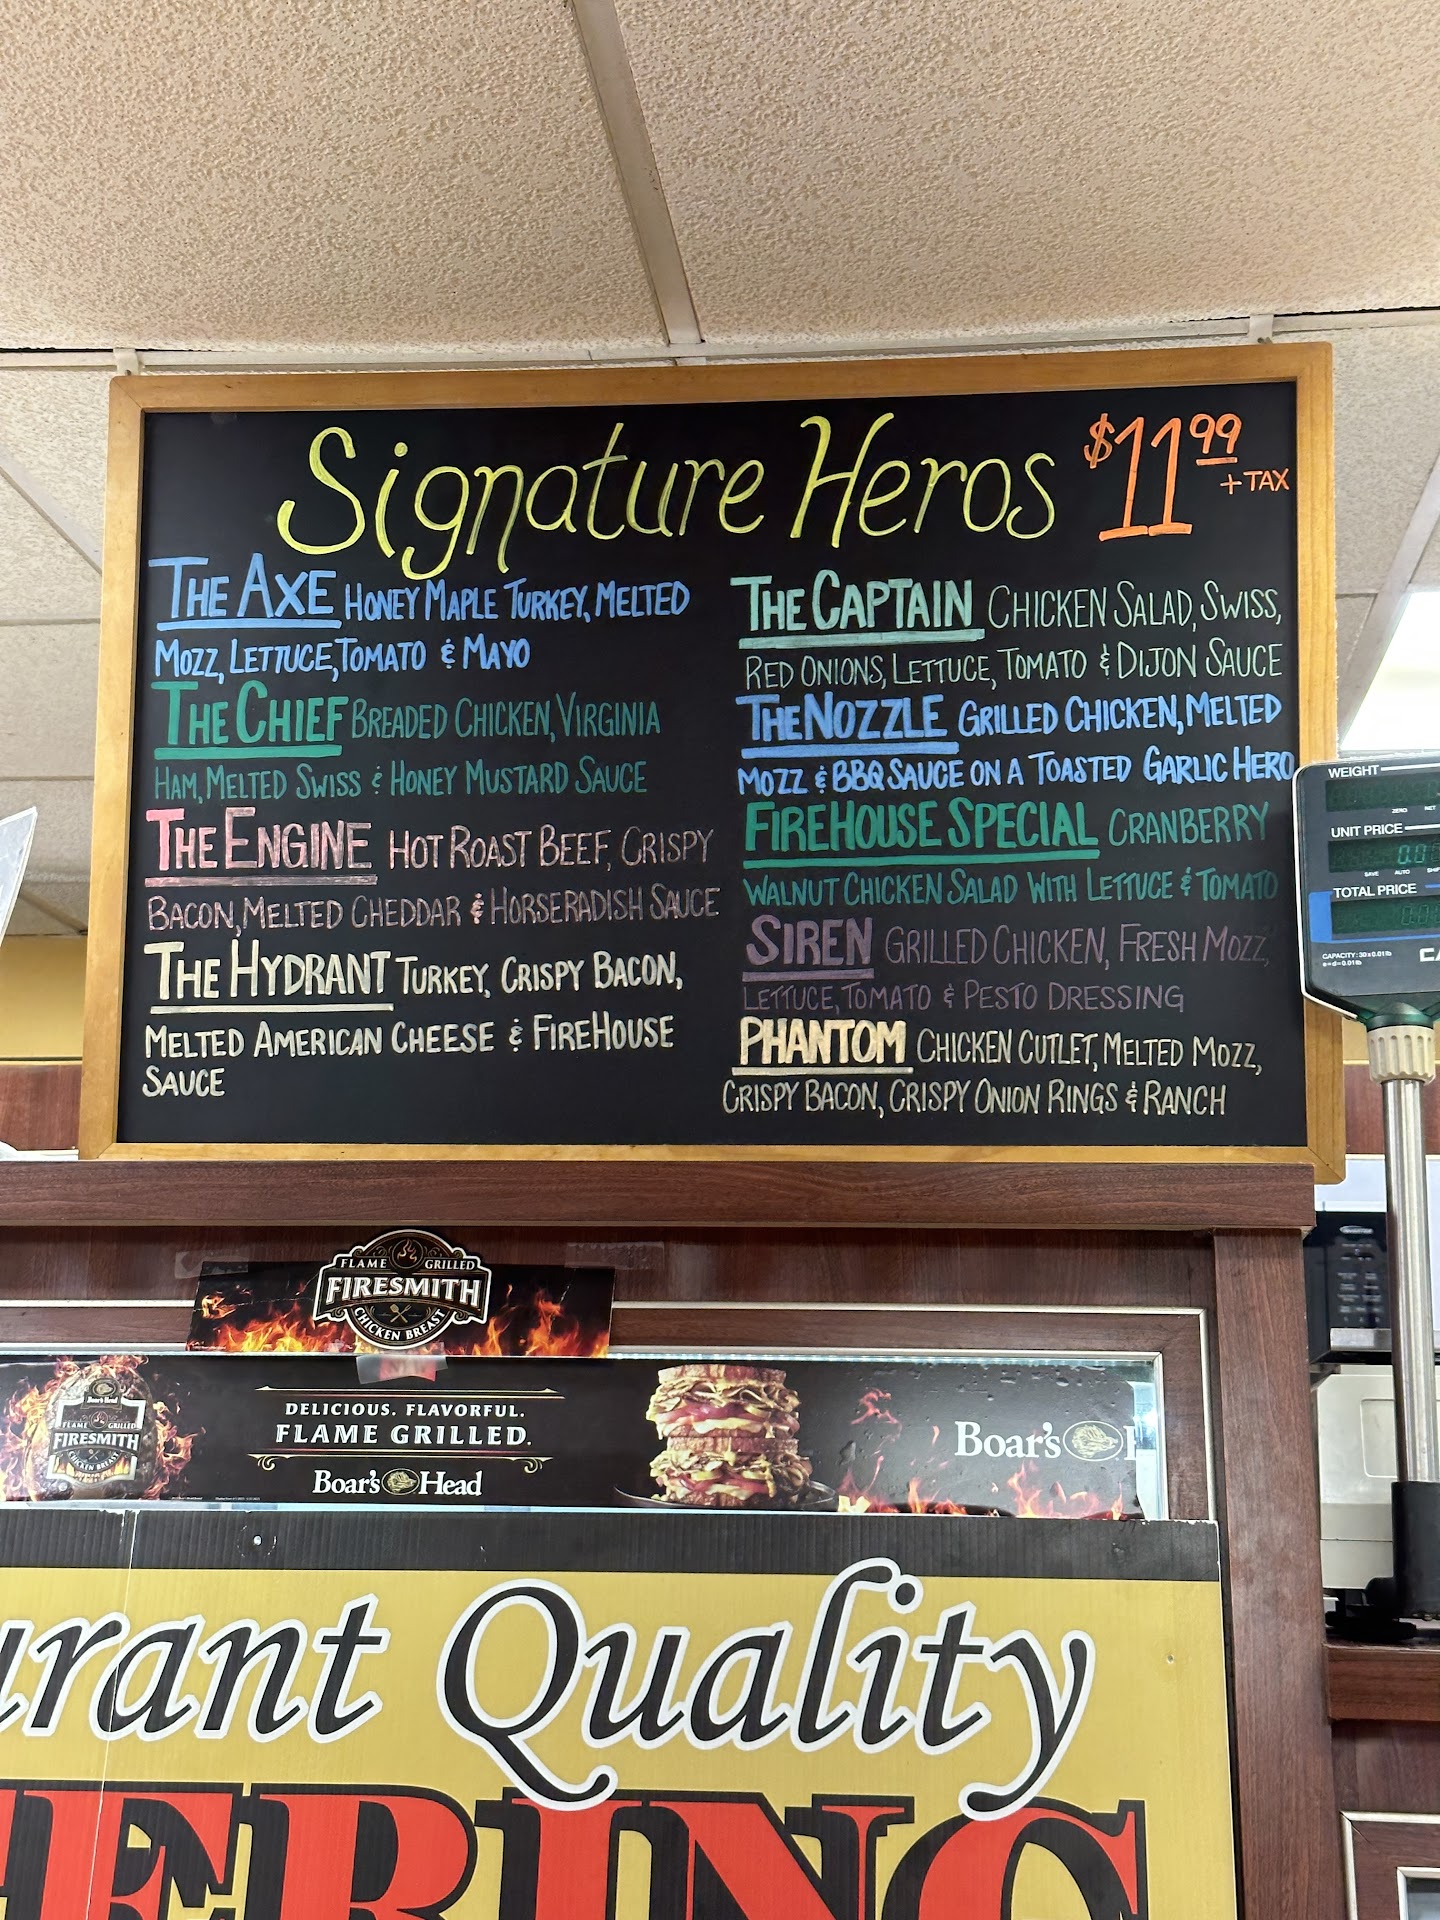 Signature Heros $11.99
+ TAX
THE AXE HONEY MAPLE TURKEY, MELTED
MOZZ, LETTUCE, TOMATO & MAYO
THE CHIEF BREADED CHICKEN, VIRGINIA
HAM, MELTED SWISS & HONEY MUSTARD SAUCE
THE ENGINE HOT ROAST BEEF, CRISPY
BACON, MELTED CHEDDAR & HORSERADISH SAUCE
THE HYDRANT TURKEY, CRISPY BACON,
MELTED AMERICAN CHEESE & FIREHOUSE
SAUCE
THE CAPTAIN CHICKEN SALAD, SWISS,
RED ONIONS, LETTUCE, TOMATO & DIJON SAUCE
THE NOZZLE GRILLED CHICKEN, MELTED
MOZZ & BBQ SAUCE ON A TOASTED GARLIC HERO
FIREHOUSE SPECIAL CRANBERRY
WALNUT CHICKEN SALAD WITH LETTUCE & TOMATO
SIREN GRILLED CHICKEN, FRESH MOZZ,
LETTUCE, TOMATO & PESTO DRESSING
PHANTOM CHICKEN CUTLET, MELTED MOZZ,
CRISPY BACON, CRISPY ONION RINGS & RANCH
WEIGHT
ZERO NET
UNIT PRICE
0.0
SAVE AUTO
TOTAL PRICE
CAPACITY: 30 x 0.01 lb
e=d=0.01 lb
FLAME GRILLED
FIRESMITH
CHICKEN BREAST
Boar's Head
FLAME GRILLED
FIRESMITH
CHICKEN BREAST
DELICIOUS. FLAVORFUL.
FLAME GRILLED.
Boar's Head
Boar's H
urant Quality
ERING